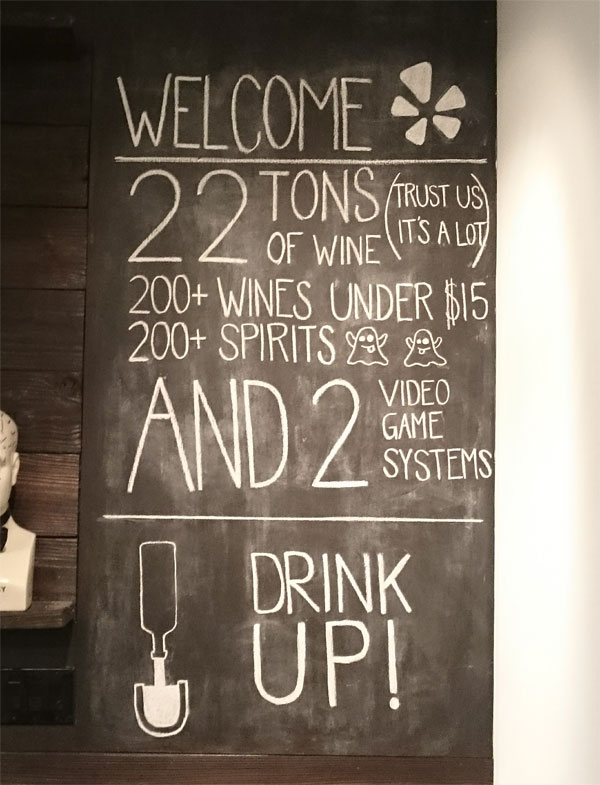 WELCOME
22 TONS OF WINE (TRUST US IT'S A LOT)
200+ WINES UNDER $15
200+ SPIRITS
AND 2 VIDEO GAME SYSTEMS
DRINK
UP!